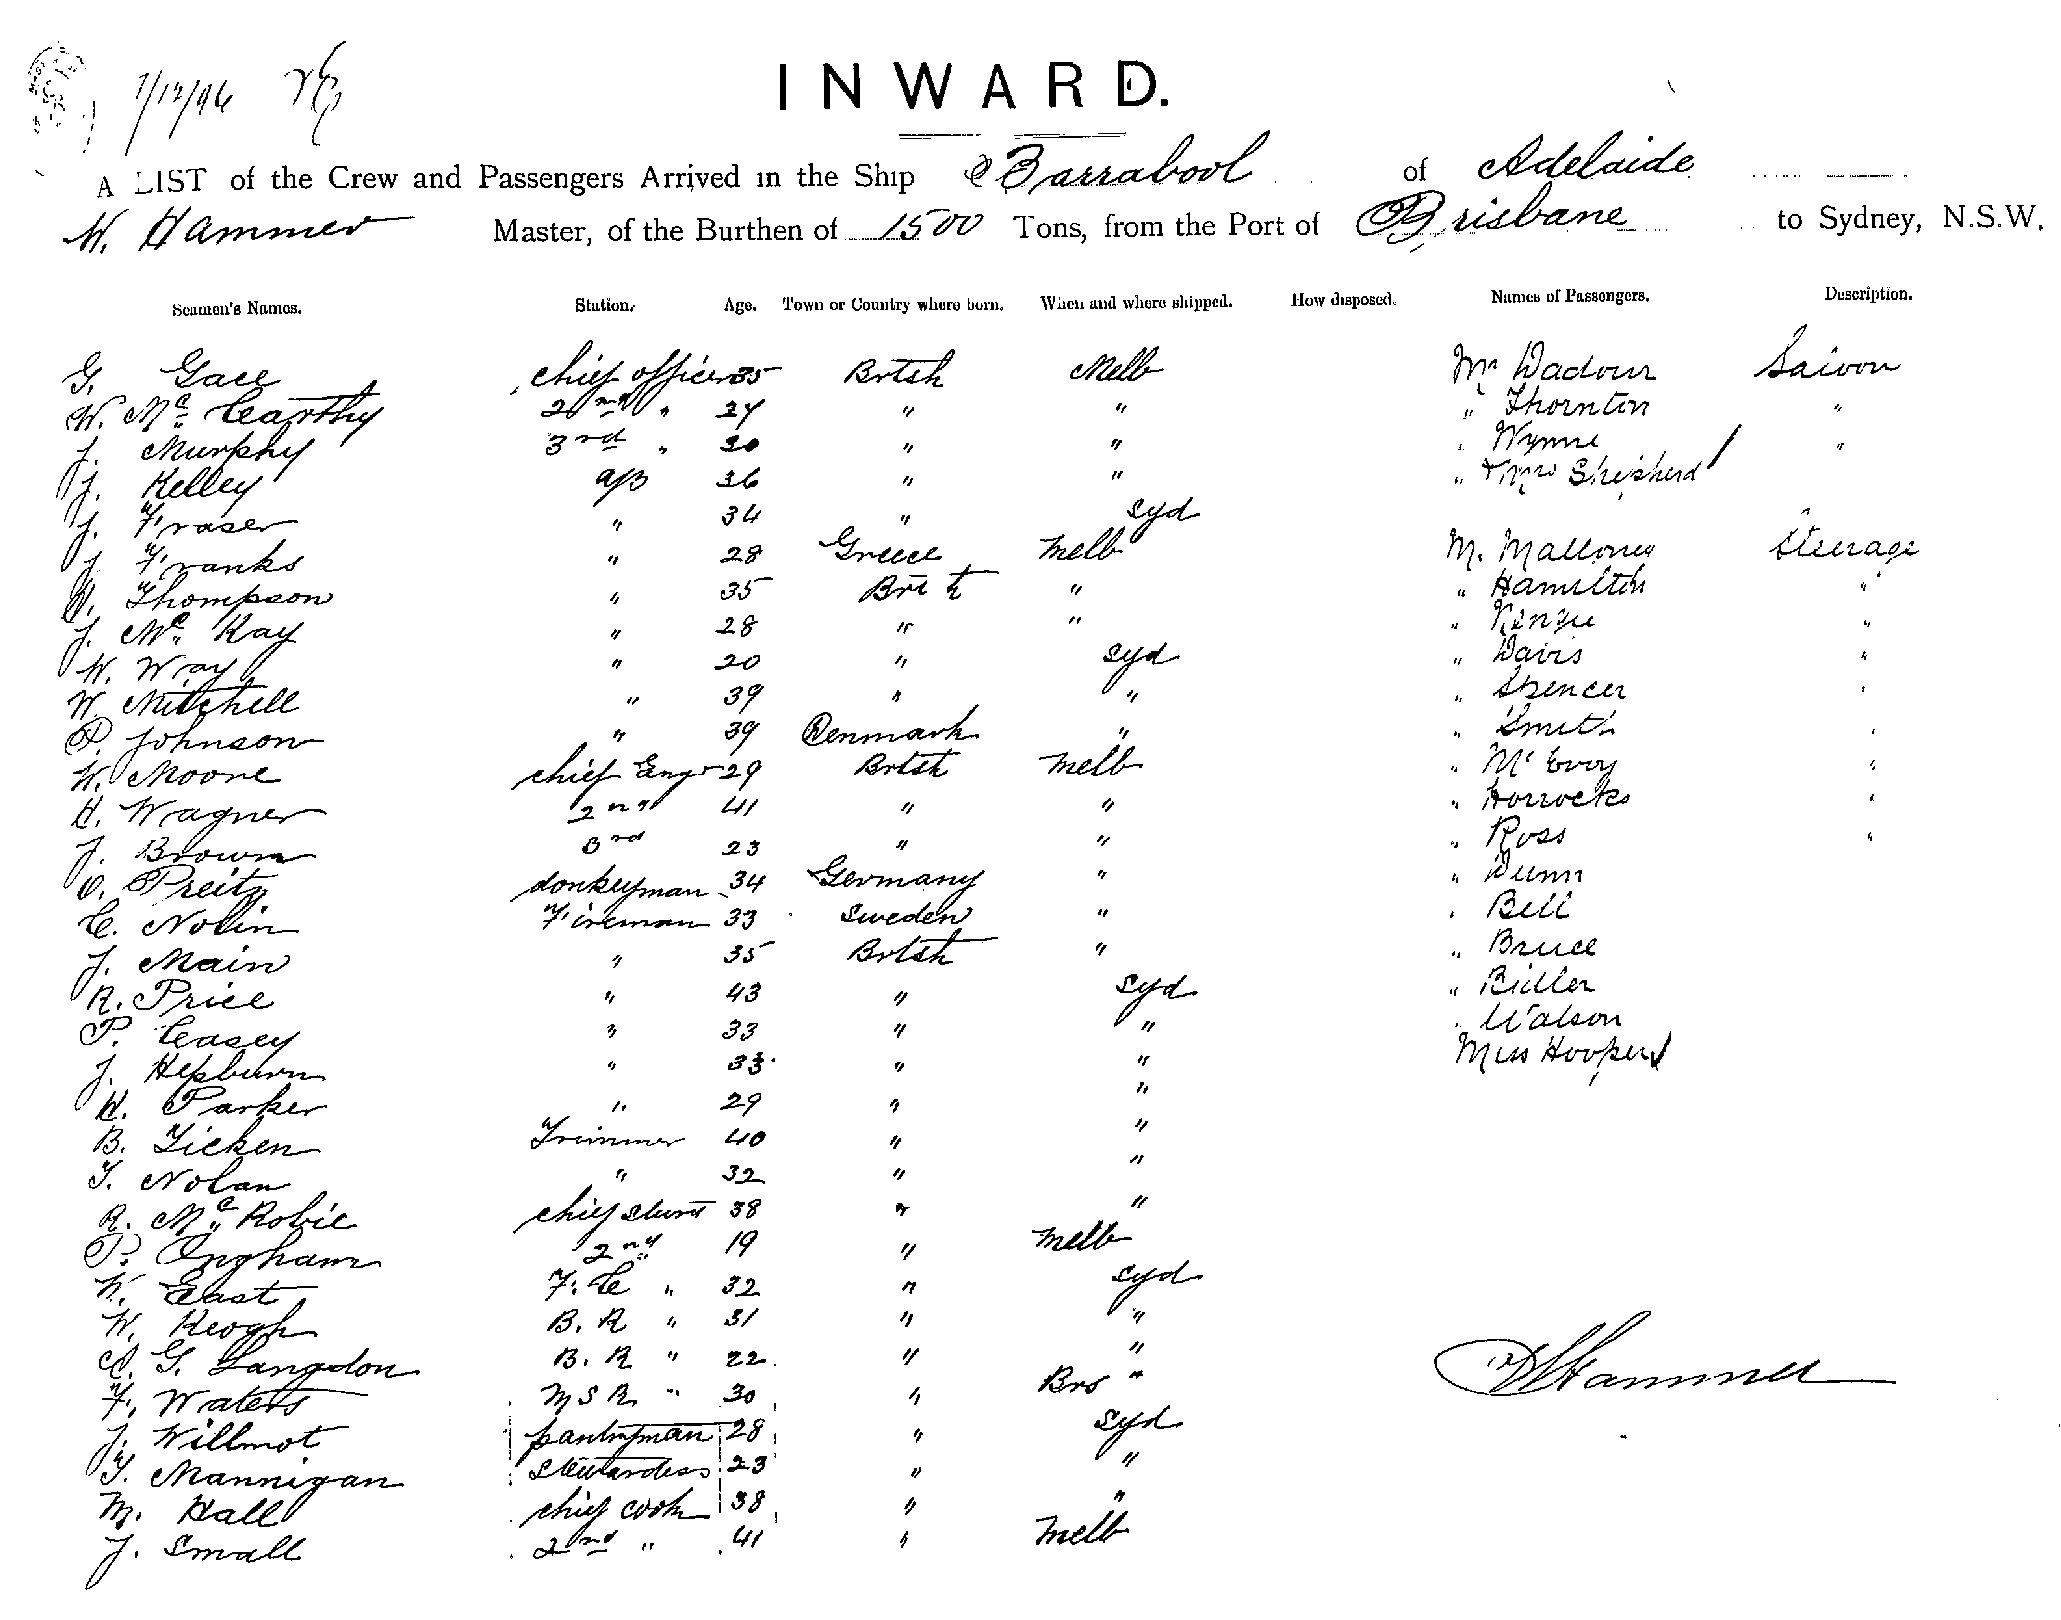 7/12/96
INWARD.
A LIST of the Crew and Passengers Arrived in the Ship Barrabool of Adelaide
W. Hammer Master, of the Burthen of 1500 Tons, from the Port of Brisbane to Sydney, N.S.W.
Seamen's Names. Station. Age. Town or Country where born. When and where shipped. How disposed. Names of Passengers. Description.
G. Gace chief officer 35 Brtsh Melb Mr Dadour Saloon
W. Mc Carthy 2nd " 27 " " " Thornton "
J. Murphy 3rd " 30 " " " Wynne "
J. Kelley A/B 36 " " " & Mrs Shepherd
J. Fraser " 34 " Syd
J. Franks " 28 Greece Melb M. Malloney Steerage
W. Thompson " 35 Brt h " " Hamilton "
J. Mc Kay " 28 " " " Kenzie "
W. Way " 20 " Syd " Davis "
W. Mitchell " 39 " " " Spencer "
P. Johnson " 39 Denmark " " Smith "
W. Moore chief Engr 29 Brtsh Melb " McEvoy "
H. Wagner 2nd 41 " " " Horrocks "
J. Brown 3rd 23 " " " Ross "
O. Preitz donkeyman 34 Germany " " Dunn
C. Nolin Fireman 33 Sweden " " Bell
J. Main " 35 Brtsh " " Bruce
R. Price " 43 " Syd " Butler
P. Casey " 33 " " " Watson
J. Hepburn " 33 " " Miss Hooper
W. Parker " 29 " "
B. Ticken Trimmer 40 " "
T. Nolan " 32 " "
R. Mc Robie chief Stwrd 38 " "
P. Ongham 2nd " 19 " Melb
W. East F. C " 32 " Syd
W. Keogh B. R " 31 " "
A. G. Langdon B. R " 22 " "
F. Waters M S R " 30 " Brs "
J. Willmot pantryman 28 " Syd
T. Mannigan Stewardess 23 " "
M. Hall chief cook 38 " "
J. Small 2nd " 41 " Melb
W Hammer